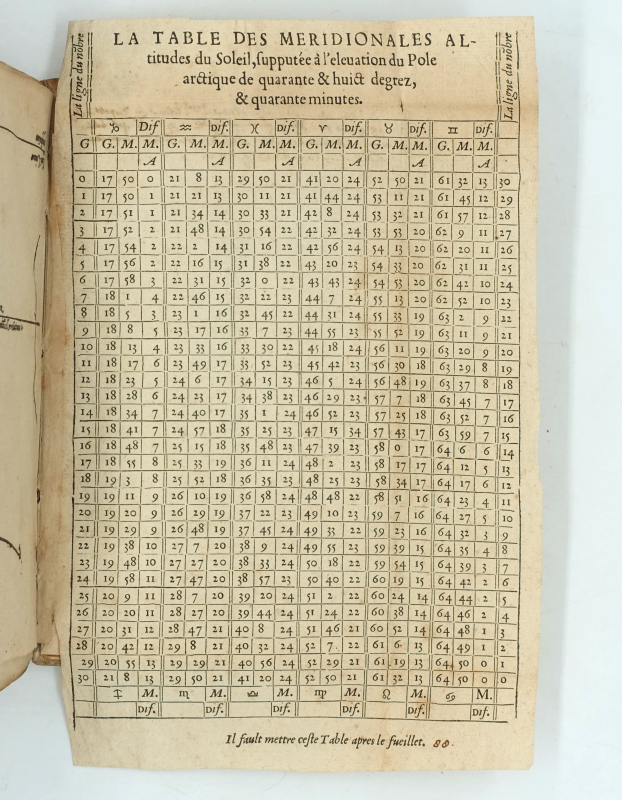 LA TABLE DES MERIDIONALES AL-
titudes du Soleil, supputée à l'eleuation du Pole
arctique de quarante & huict degrez,
& quarante minutes.
La ligne du nõbre
La ligne du nõbre
♑ Dif ♒ Dif. ♓ Dif. ♈ Dif. ♉ Dif. ♊ Dif.
G G. M. M. G. M. M. G. M. M. G. M. M. G. M. M. G. M. M.
A A A A A A
0 17 50 0 21 8 13 29 50 21 41 20 24 52 50 21 61 32 13 30
1 17 50 1 21 21 13 30 11 21 41 44 24 53 11 21 61 45 12 29
2 17 51 1 21 34 14 30 33 21 42 8 24 53 32 21 61 57 12 28
3 17 52 2 21 48 14 30 54 22 42 32 24 53 53 20 62 9 11 27
4 17 54 2 22 2 14 31 16 22 42 56 24 54 13 20 62 20 11 26
5 17 56 2 22 16 15 31 38 22 43 20 23 54 33 20 62 31 11 25
6 17 58 3 22 31 15 32 0 22 43 43 24 54 53 20 62 42 10 24
7 18 1 4 22 46 15 32 22 23 44 7 24 55 13 20 62 52 10 23
8 18 5 3 23 1 16 32 45 22 44 31 24 55 33 19 63 2 9 22
9 18 8 5 23 17 16 33 7 23 44 55 23 55 52 19 63 11 9 21
10 18 13 4 23 33 16 33 30 22 45 18 24 56 11 19 63 20 9 20
11 18 17 6 23 49 17 33 52 23 45 42 23 56 30 18 63 29 8 19
12 18 23 5 24 6 17 34 15 23 46 5 24 56 48 19 63 37 8 18
13 18 28 6 24 23 17 34 38 23 46 29 23 57 7 18 63 45 7 17
14 18 34 7 24 40 17 35 1 24 46 52 23 57 25 18 63 52 7 16
15 18 41 7 24 57 18 35 25 23 47 15 34 57 43 17 63 59 7 15
16 18 48 7 25 15 18 35 48 23 47 39 23 58 0 17 64 6 6 14
17 18 55 8 25 33 19 36 11 24 48 2 23 58 17 17 64 12 5 13
18 19 3 8 25 52 18 36 35 23 48 25 23 58 34 17 64 17 6 12
19 19 11 9 26 10 19 36 58 24 48 48 22 58 51 16 64 23 4 11
20 19 20 9 26 29 19 37 22 23 49 10 23 59 7 16 64 27 5 10
21 19 29 9 26 48 19 37 45 24 49 33 22 59 23 16 64 32 3 9
22 19 38 10 27 7 20 38 9 24 49 55 23 59 39 15 64 35 4 8
23 19 48 10 27 27 20 38 33 24 50 18 22 59 54 15 64 39 3 7
24 19 58 11 27 47 20 38 57 23 50 40 22 60 19 15 64 42 2 6
25 20 9 11 28 7 20 39 20 24 51 2 22 60 24 14 64 44 2 5
26 20 20 11 28 27 20 39 44 24 51 24 22 60 38 14 64 46 2 4
27 20 31 12 28 47 21 40 8 24 51 46 21 60 52 14 64 48 1 3
28 20 42 12 29 8 21 40 32 24 52 7 22 61 6 13 64 49 1 2
29 20 55 13 29 29 21 40 56 24 52 29 21 61 19 13 64 50 0 1
30 21 8 13 29 50 21 41 20 24 52 50 21 61 32 13 64 50 0 0
♐ M. ♏ M. ♎ M. ♍ M. ♌ M. ♋ M.
Dif. Dif. Dif. Dif. Dif. Dif.
Il fault mettre ceste Table apres le fueillet. 88.